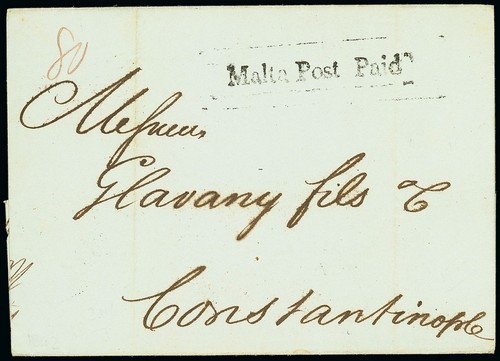 80
Malta Post Paid
Messieurs
Glavany fils &
Constantinople